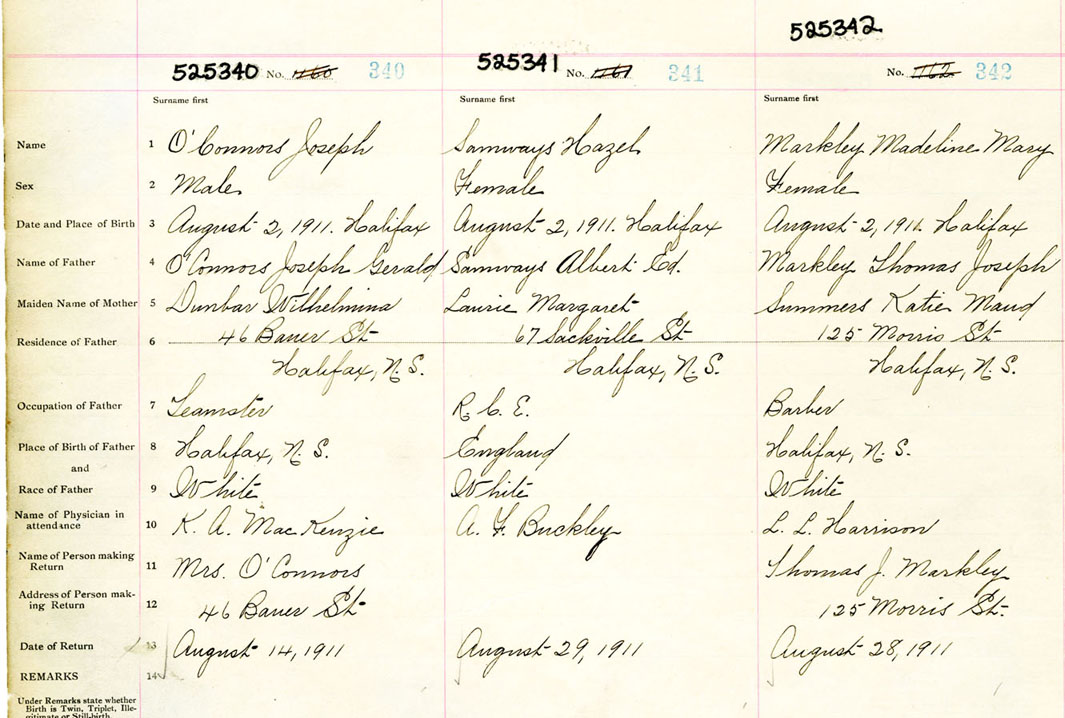 525342
525340 No. 1160 340 525341 No. 1161 341 No. 1162 342
Surname first Surname first Surname first
Name 1 O'Connors Joseph Samways Hazel Markley Madeline Mary
Sex 2 Male Female Female
Date and Place of Birth 3 August 2, 1911. Halifax August 2, 1911. Halifax August 2, 1911. Halifax
Name of Father 4 O'Connors Joseph Gerald Samways Albert Ed. Markley Thomas Joseph
Maiden Name of Mother 5 Dunbar Wilhelmina Laurie Margaret Summers Katie Maud
46 Bauer St 67 Sackville St 125 Morris St
Residence of Father 6
Halifax, N.S. Halifax, N.S. Halifax, N.S.
Occupation of Father 7 Teamster R.C.E. Barber
Place of Birth of Father 8 Halifax, N.S. England Halifax, N.S.
and
Race of Father 9 White White White
Name of Physician in
attendance 10 K. A. MacKenzie A. F. Buckley L. L. Harrison
Name of Person making
Return 11 Mrs. O'Connors Thomas J. Markley
Address of Person mak-
ing Return 12 46 Bauer St 125 Morris St.
Date of Return 13 August 14, 1911 August 29, 1911 August 28, 1911
REMARKS 14
Under Remarks state whether
Birth is Twin, Triplet, Ille-
gitimate or Still-birth.